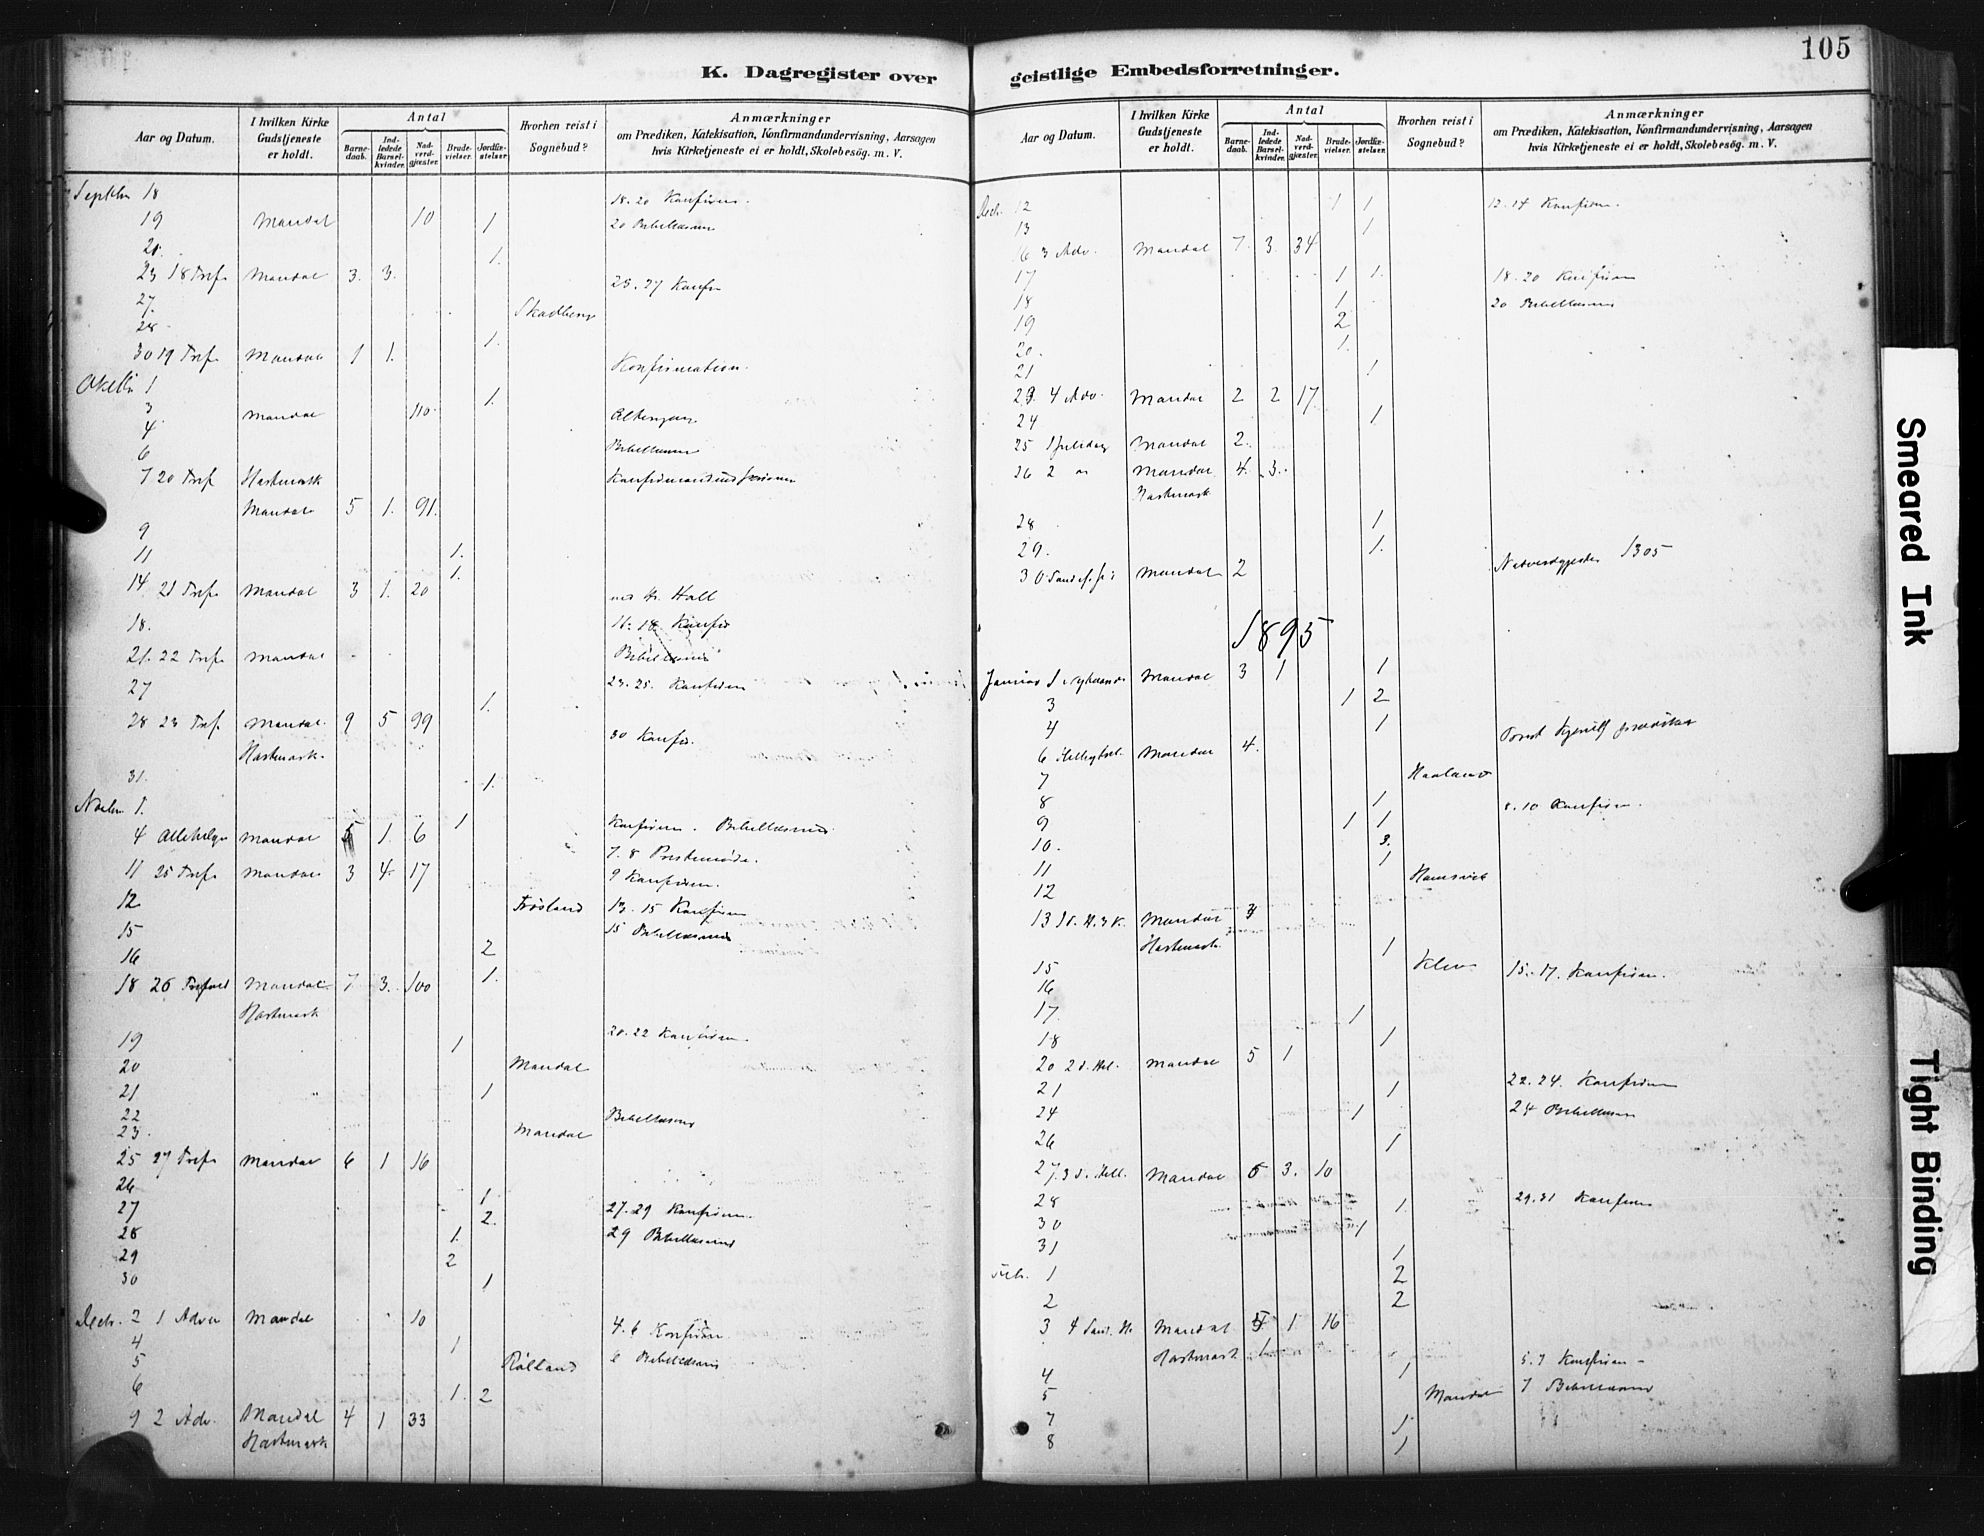 K. Dagregister over
Aar og Datum.
I hvilken Kirke Gudstjeneste er holdt.
Antal
Barne-daab.
Ind-ledede Barsel-kvinder.
Nad-verd-gjæster.
Brude-vielser.
Jordfæ-stelser.
Hvorhen reist i Sognebud?
Anmærkninger
om Prædiken, Katekisation, Konfirmandundervisning, Aarsagen
hvis Kirketjeneste ei er holdt, Skolebesøg. m. V.
18 18-20 Konfirm.
19 Mandal 10 1 20 Bibellæsning
21. 1.
23 18 Tref. Mandal 3. 3. 23.27 Konf
27. Skadberg
28 1.
30 19 Tref. Mandal 1 1. Konfirmation.
1
3 Mandal 110. 1.
4
6 Bibellæsn
7 20 Tref Hartmark
Mandal 5 1. 91.
9 1.
11 1.
14 21 Tref. Mandal 3 1. 20 Hall
18. 11-18 Konfir
21. 22 Tref. Mandal Bibellæsning
27 1. 23.25. Konfirm
28 23 Tref. Mandal 9 5 99 30 Konfir.
Hartmark.
31. 1.
1. 1
4 Allehelgen Mandal 5 1. 6 Konfirm. Bibellæsning
11 25 Tref. Mandal 3 4 17 7.8 Prestemøde.
9 Konfirm.
12 Frøsland 13.15 Konfirm
15 2 15 Bibellæsning
16 1.
18 26 Tref Mandal 7 3. 100
Hartmark
19 1 20.22 Konfirm.
20 Mandal
21 1
22 Bibellæsning
23. Mandal
25 27 Tref. Mandal 6 1 16
26 1.
27 2. 27.29 Konfirm.
28 1. 29 Bibellæsning
29 2
30 1
Decb. 2 1 Adven Mandal 10 4.6 Konfirm.
4 1
5 6 Bibellæsning
6 1. 2
9 2 Adv. Mandal 4 1 33
Hartmark
geistlige Embedsforretninger.
105
Aar og Datum.
I hvilken Kirke Gudstjeneste er holdt.
Antal
Barne-daab.
Ind-ledede Barsel-kvinder.
Nad-verd-gjæster.
Brude-vielser.
Jordfæ-stelser.
Hvorhen reist i Sognebud?
Anmærkninger
om Prædiken, Katekisation, Konfirmandundervisning, Aarsagen
hvis Kirketjeneste ei er holdt, Skolebesøg. m. V.
Decb. 12 1 1 12.14 Konfirm.
13 1
16 3 Adv. Mandal 7. 3. 34
17 1 1. 18.20 Konfirm
18 1 20 Bibellæsning
19 2
20. 1.
21 1
23. 4 Adv. Mandal 2 2 17
24 1
25 1 Juledag Mandal 2.
26 2 Mandal 4. 3.
Hartmark
28 1
29. 1.
30 Mandal 2 Nadverdgjester 1305
1895
Januar 1 Mandal 3 1 1
3 1 2
4 1
6 Mandal 4.
7 Haaland
8 1 8.10 Konfirm.
9 1 1
10. 3.
11 1
12
13 Mandal
Hartmark 1
15 Klev 15.-17. Konfirm.
16
17. 1
18 1
20 Mandal 5 1
21 1 22.24. Konfirm
24 1 24 Bibellæsn
26 1
27. Mandal 5 3. 10
28 1 29.31 Konfirm
30 1
31 1
1 2
2 2
3 Mandal 5 1 16
Hartmark 1
4 1 5.7 Konfirm
5 Mandal 7 Bibellæsning
7 1
8 1
Smeared Ink
Tight Binding